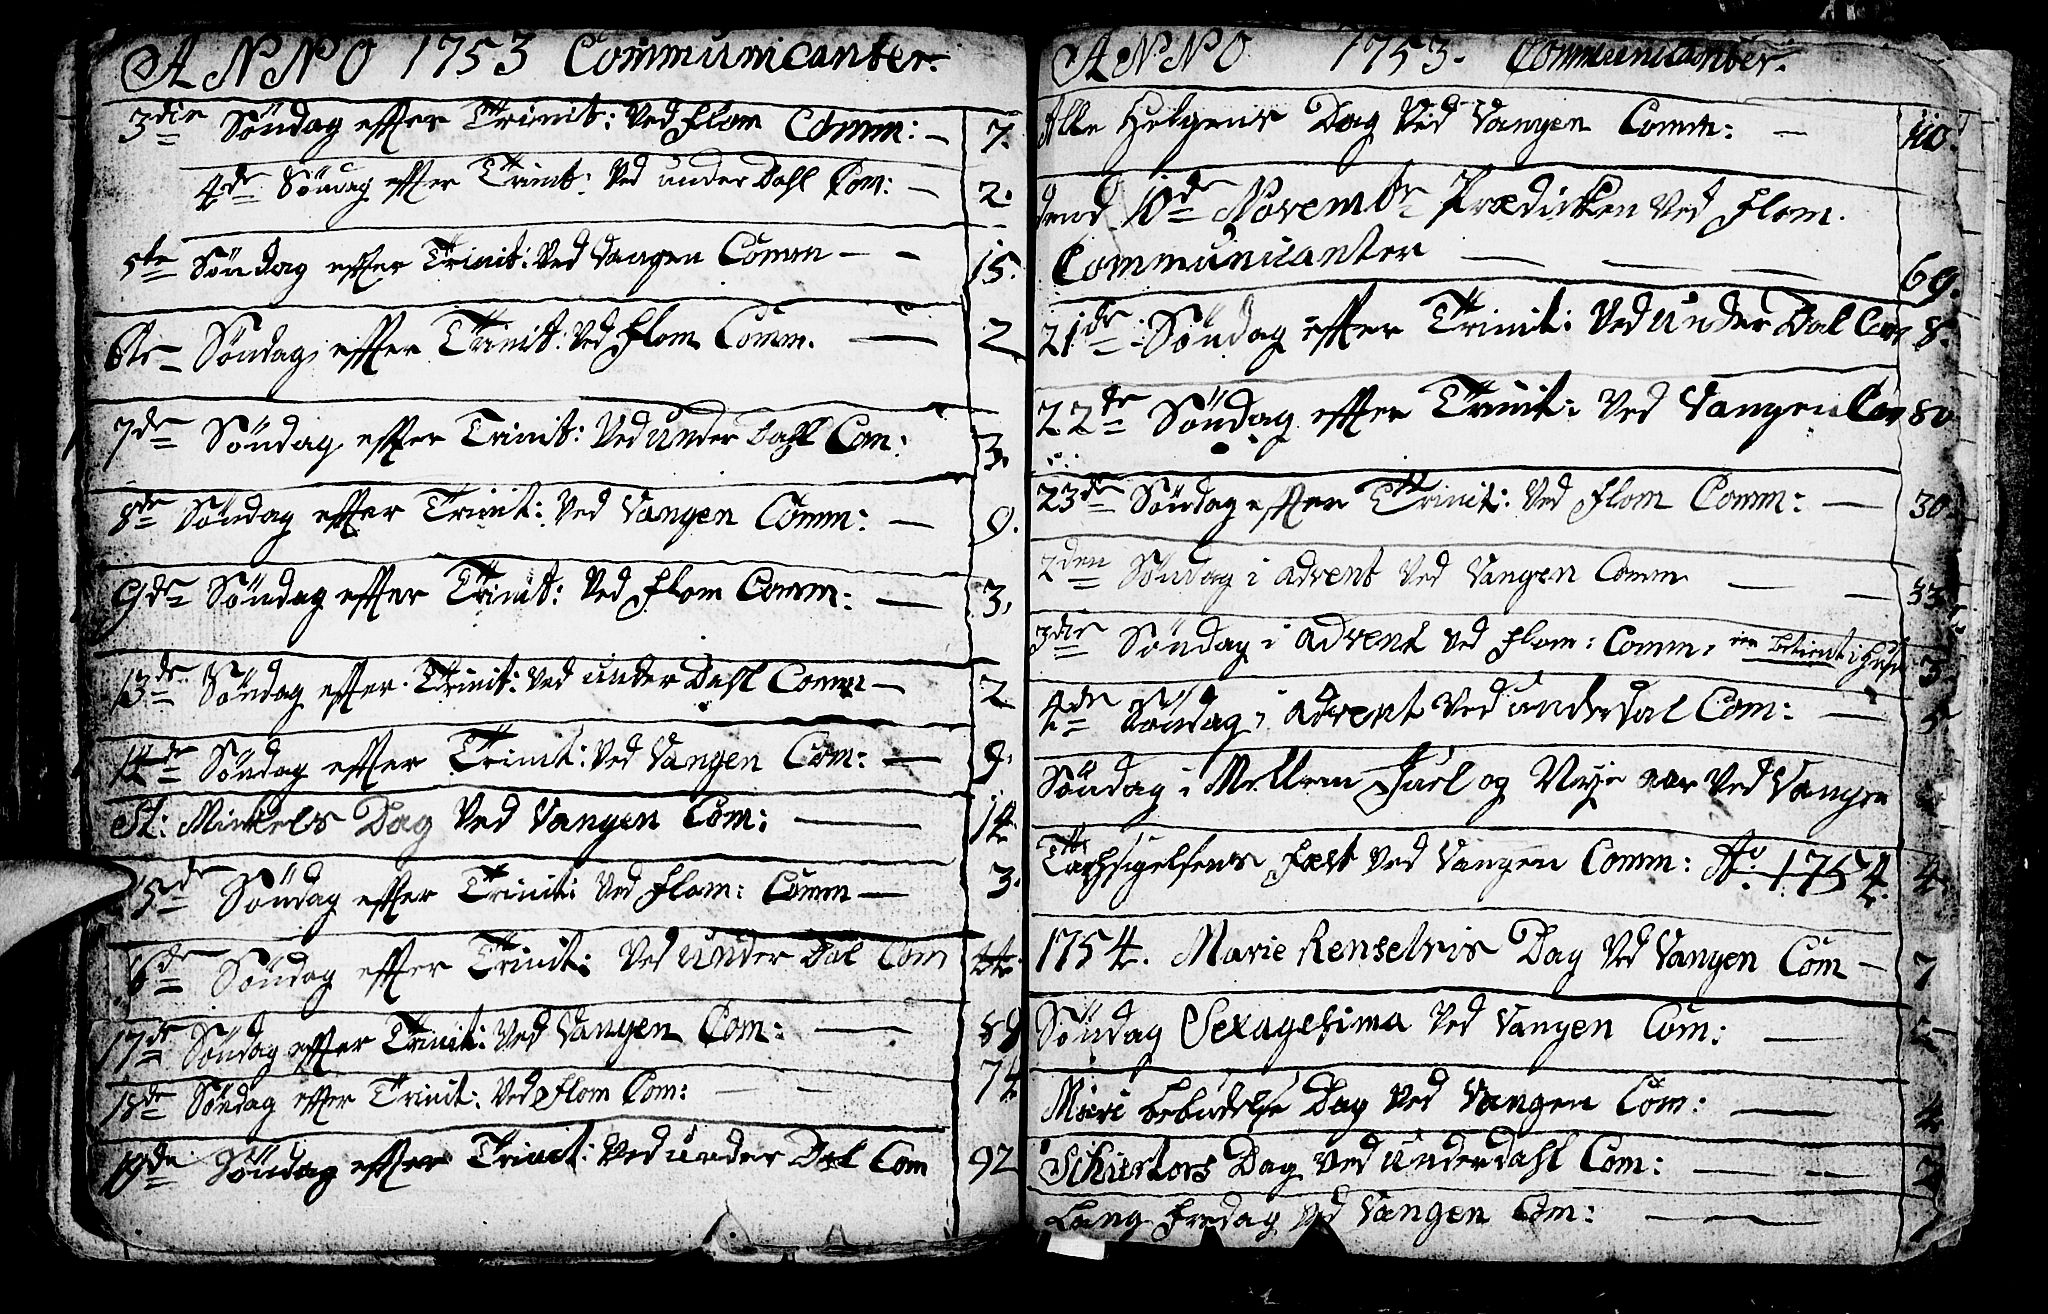 ANNO 1753 Communicanter.
3die Søndag effter Trinit: Ved Flom Comm: – 7.
4de Søndag effter Trinit: Ved under Dahl Com: – 2.
5te Søndag effter Trinit: Ved Vangen Comm – – 15.
6te Søndag effter Trinit: Ved Flom Comm. – 2
7de Søndag effter Trinit: Ved under Dahl Com: 3.
8de Søndag effter Trinit: Ved Vangen Comm: – 9.
9de Søndag effter Trinit: Ved Flom Comm: – 3.
13de Søndag effter Trinit: Ved under Dahl Comm – 2
14de Søndag effter Trinit: Ved Vangen Com: – 9.
St: Michels Dag Ved Vangen Com: – 14.
15de Søndag effter Trinit: Ved Flom: Comm – 3.
16de Søndag effter Trinit: Ved under Dal Com 44.
17de Søndag effter Trinit: Ved Vangen Com: – 89
18de Søndag effter Trinit: Ved Flom Com: – – 74
19de Søndag effter Trinit: Ved under Dal Com 92
ANNO 1753. Communicanter.
Alle Helgens Dag Ved Vangen Comm: – 110.
10de Novembr Prædicken Ved Flom.
Communicanter – – – 69.
21de Søndag effter Trinit: Ved under Dal Com 8.
22de Søndag effter Trinit: Ved Vangen Com 80
23de Søndag effter Trinit: Ved Flom Comm: – 30.
2den Søndag i Advent Ved Vangen Comm – – 33.
3die Søndag i Advent Ved Flom: Comm: en betient i 3.
4de Søndag i Advent Ved underdal Com: – 5.
Søndag i Mellem Juel og Nyje aar Ved Vangen
Tachsigelsens Fæst Ved Vangen Comm: Ao. 1754. 4.
1754. Marie Renselsis Dag Ved Vangen Com – 7
Søndag Sexagesima Ved Vangen Com: – 5
Mari bebudelse Dag Ved Vangen Com: – 4
Schiertors Dag Ved Underdahl Com: – – 2
Lang Fredag Ved Vangen Com: – –